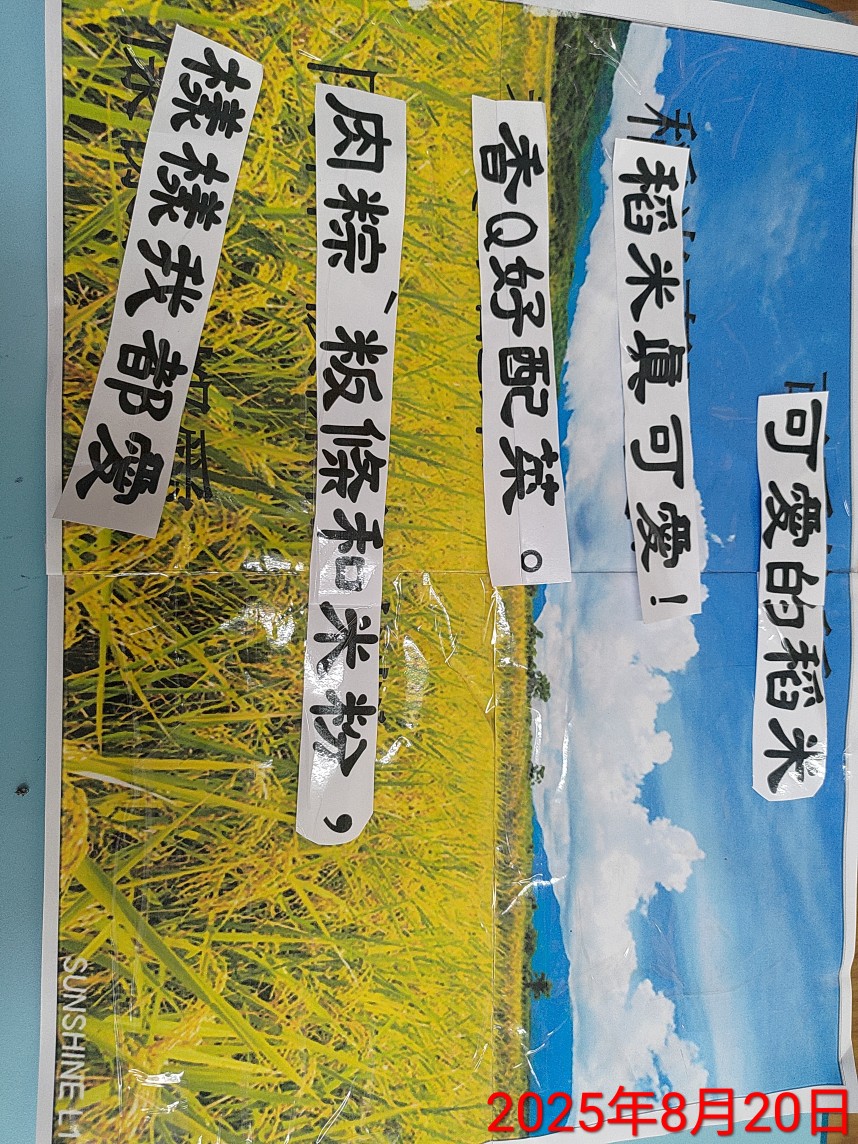 可愛的稻米
稻米真可愛！
香Q好配菜。
肉粽、粄條和米粉，
樣樣我都愛
SUNSHINE L1
2025年8月20日